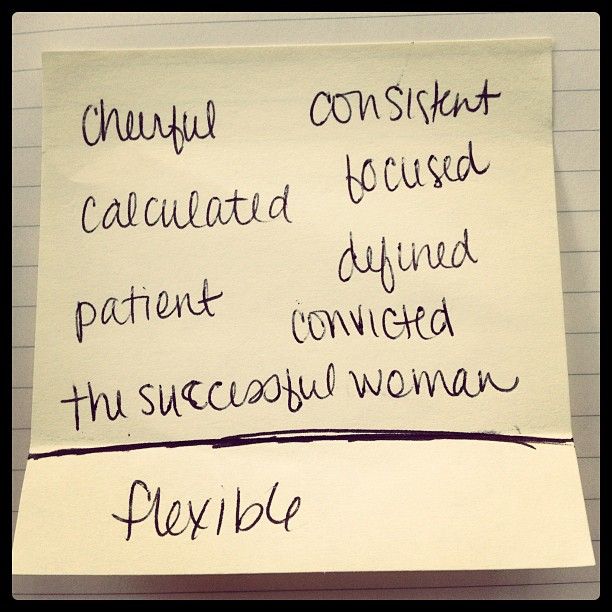 cheerful consistent
calculated focused
patient defined
convicted
the successful woman
flexible